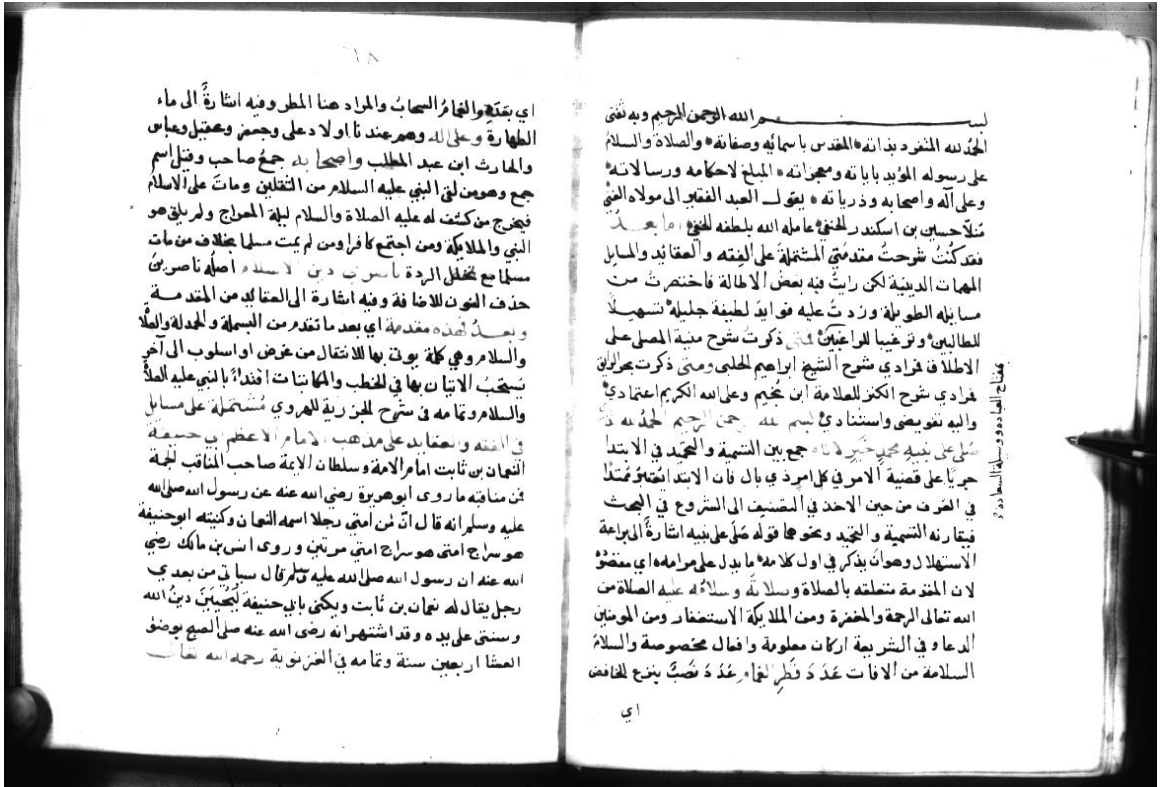 بسم الله الرحمن الرحيم وبه ثقتي
الحمد لله المنفرد بذاته المقدس باسمائه وصفاته والصلاة والسلام
على رسوله المؤيد باياته ومعجزاته المبلغ لاحكامه ورسالاته
وعلى آله واصحابه وذرياته يقول العبد الفقير الى مولاه الغني
منلا حسين بن اسكندر الحنفي عامله الله بلطفه الخفي اما بعد
فقد كنت شرحت مقدمتي المشتملة على الفقه والعقايد والمسايل
المهمات الدينية لكن رايت فيه بعض الاطالة فاختصرت من
مسايله الطويلة وزدت عليه فوايد لطيفة جليلة تسهيلا
للطالبين وترغيبا للراغبين فمتى ذكرت شرح منية المصلي على
الاطلاق فمرادي شرح الشيخ ابراهيم الحلبي ومتى ذكرت بحر الرايق
فمرادي شرح الكنز للعلامة ابن نجيم وعلى الله الكريم اعتمادي
واليه تفويضي واستنادي بسم الله الرحمن الرحيم الحمد لله
صلى على نبيه محمد خير جمع بين التسمية والتحميد في الابتدا
جريا على قضية الامر في كل امر ذي بال فان الابتدا يعتبر ممتدا
في العرف من حين الاخذ في التصنيف الى الشروع في البحث
فيقارنه التسمية والتحميد ونحوهما قوله صلى على نبيه اشارة الى براعة
الاستهلال وهو ان يذكر في اول كلامه ما يدل على مرامه اي مقصوده
لان المقدمة متعلقه بالصلاة وصلاته وسلامه عليه الصلاة من
الله تعالى الرحمة والمغفرة ومن الملايكة الاستغفار ومن المومنين
الدعا وفي الشريعة اركان معلومة وافعال مخصوصة والسلام
السلامة من الافات عدد قطر الغمام عدد نصب بنزع الخافض
اي
مفتاح العبادة ووسيلة السعادة
٦٨
اي بعدة والغمام السحاب والمراد هنا المطر وفيه اشارة الى ماء
الطهارة وعلى اله وهم عندنا اولاد على وجعفر وعقيل وعباس
والحارث ابن عبد المطلب واصحابه جمع صاحب وقيل اسم
جمع وهو من لقي النبي عليه السلام من الثقلين ومات على الاسلام
فيخرج من كشف له عليه الصلاة والسلام ليلة المعراج ولم يلق هو
النبي والملايكة ومن اجتمع كافرا ومن لم يمت مسلما بخلاف من مات
مسلما مع تخلل الردة ناصري دين الاسلام اصله ناصرين
حذف النون للاضافة وفيه اشارة الى العقايد من المقدمة
وبعد فهذه مقدمة اي بعد ما تقدم من البسملة والحمدلة والصلاة
والسلام وهي كلمة يوتي بها للانتقال من غرض او اسلوب الى آخر
يستحب الاتيان بها في الخطب والمكاتبات اقتداء بالنبي عليه الصلاة
والسلام وتمامه في شرح الجزرية للهروي مشتملة على مسايل
في الفقه والعقايد على مذهب الامام الاعظم ابي حنيفة
النعمان بن ثابت امام الامة وسلطان الايمة صاحب المناقب الجمة
فمن مناقبه ما روى ابو هريرة رضي الله عنه عن رسول الله صلى الله
عليه وسلم انه قال ان من امتي رجلا اسمه النعمان وكنيته ابو حنيفة
هو سراج امتي هو سراج امتي مرتين وروى انس بن مالك رضي
الله عنه ان رسول الله صلى الله عليه وسلم قال سياتي من بعدي
رجل يقال له نعمان بن ثابت ويكنى بابي حنيفة ليحيين دين الله
وسنتي على يده وقد اشتهر انه رضى الله عنه صلى الصبح بوضؤ
العشا اربعين سنة وتمامه في الغزنوية رحمه الله تعالى